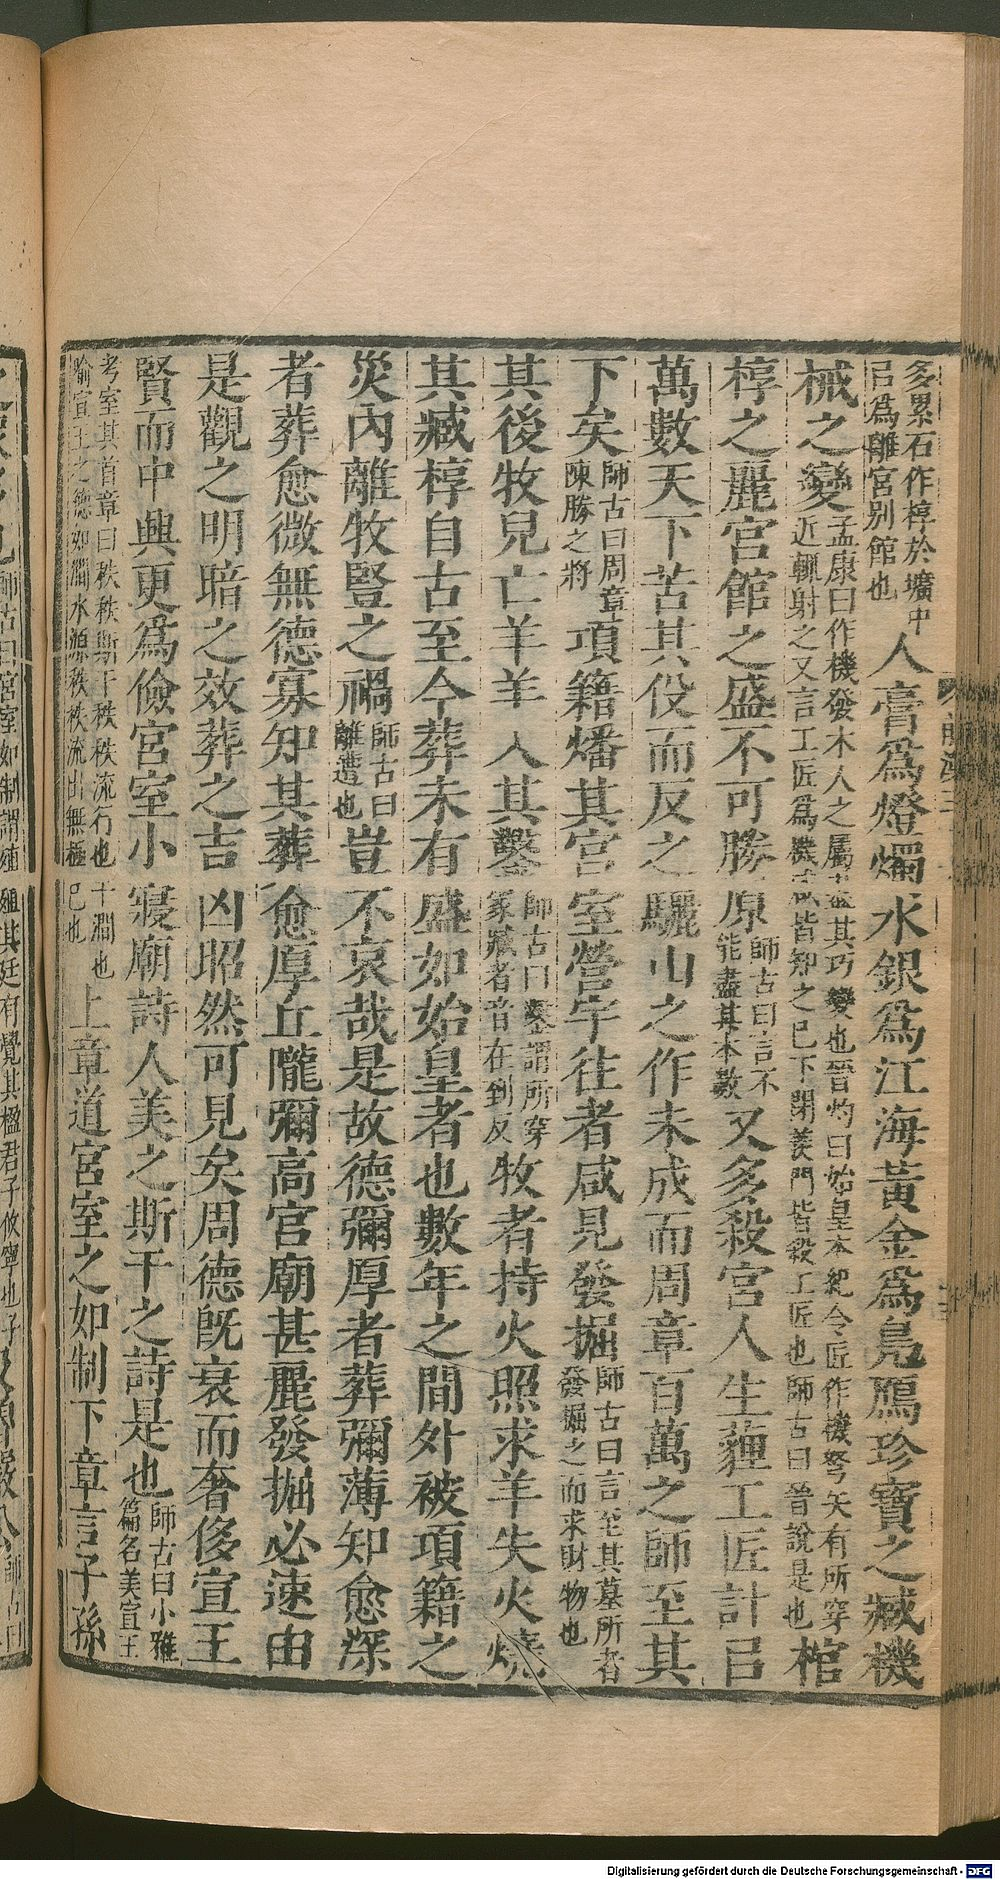 多累石作椁於壙中㠯爲離宮别館也人膏爲燈燭水銀爲江海黃金爲鳧鴈珍寶之臧機
械之變孟康曰作機發木人之屬盡其巧變也晉灼曰始皇本紀令匠作機弩矢有所穿近輒射之又言工匠爲機咸皆知之已下閉羡門皆殺工匠也師古曰晉說是也棺
椁之麗宮館之盛不可勝原師古曰言不能盡其本數又多殺宮人生薶工匠計㠯
萬數天下苦其役而反之驪山之作未成而周章百萬之師至其
下矣師古曰周章陳勝之將項籍燔其宮室營宇往者咸見發掘師古曰言至其墓所者發掘之而求財物也
其後牧兒亡羊羊入其鑿師古曰鑿謂所穿冢臧者音在到反牧者持火照求羊失火燒
其臧椁自古至今葬未有盛如始皇者也數年之間外被項籍之
災內離牧豎之禍師古曰離遭也豈不哀哉是故德彌厚者葬彌薄知愈深
者葬愈微無德寡知其葬愈厚丘隴彌高宮廟甚麗發掘必速由
是觀之明暗之效葬之吉凶昭然可見矣周德旣衰而奢侈宣王
賢而中興更爲儉宮室小寢廟詩人美之斯干之詩是也師古曰小雅篇名美宣王
考室其首章曰秩秩斯干秩秩流行也干澗也喻宣王之德如澗水源秩秩流出無極已也上章道宮室之如制下章言子孫
Digitalisierung gefördert durch die Deutsche Forschungsgemeinschaft - DFG